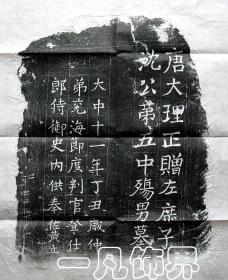 唐大理正贈左庶子
沈公苐五中殤男墓
大中十一年丁丑歲仲
弟兖海節度判官登仕
郎侍御史内供奉佐黄立
一凡饰界